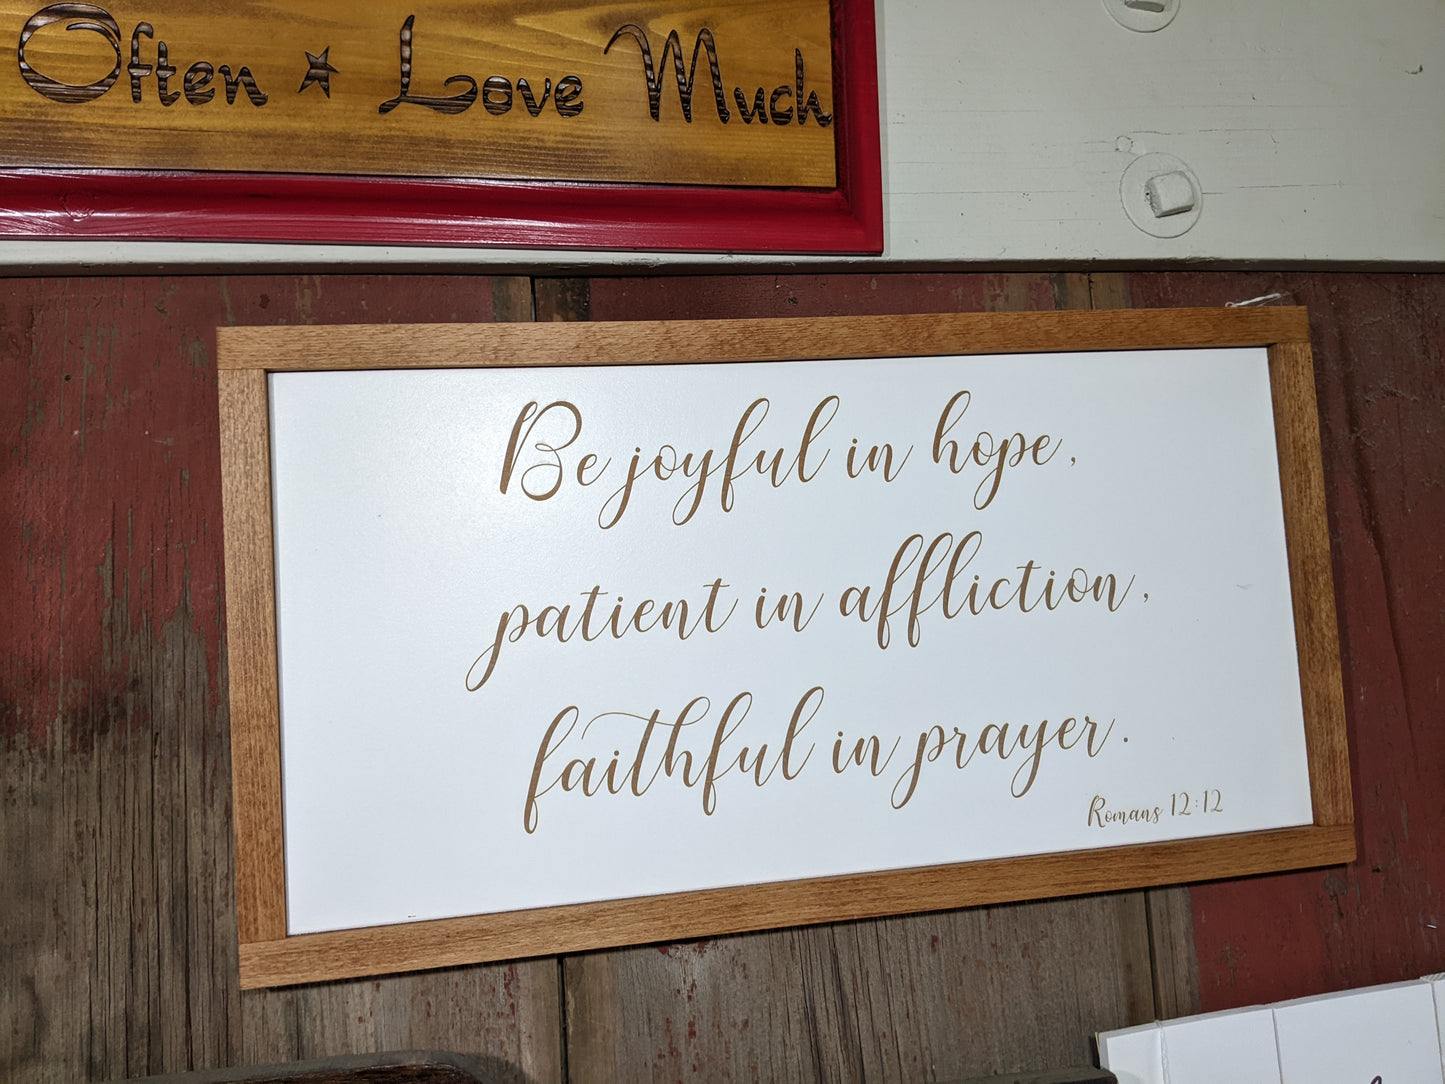 Often ★ Love Much
Be joyful in hope,
patient in affliction,
faithful in prayer.
Romans 12:12